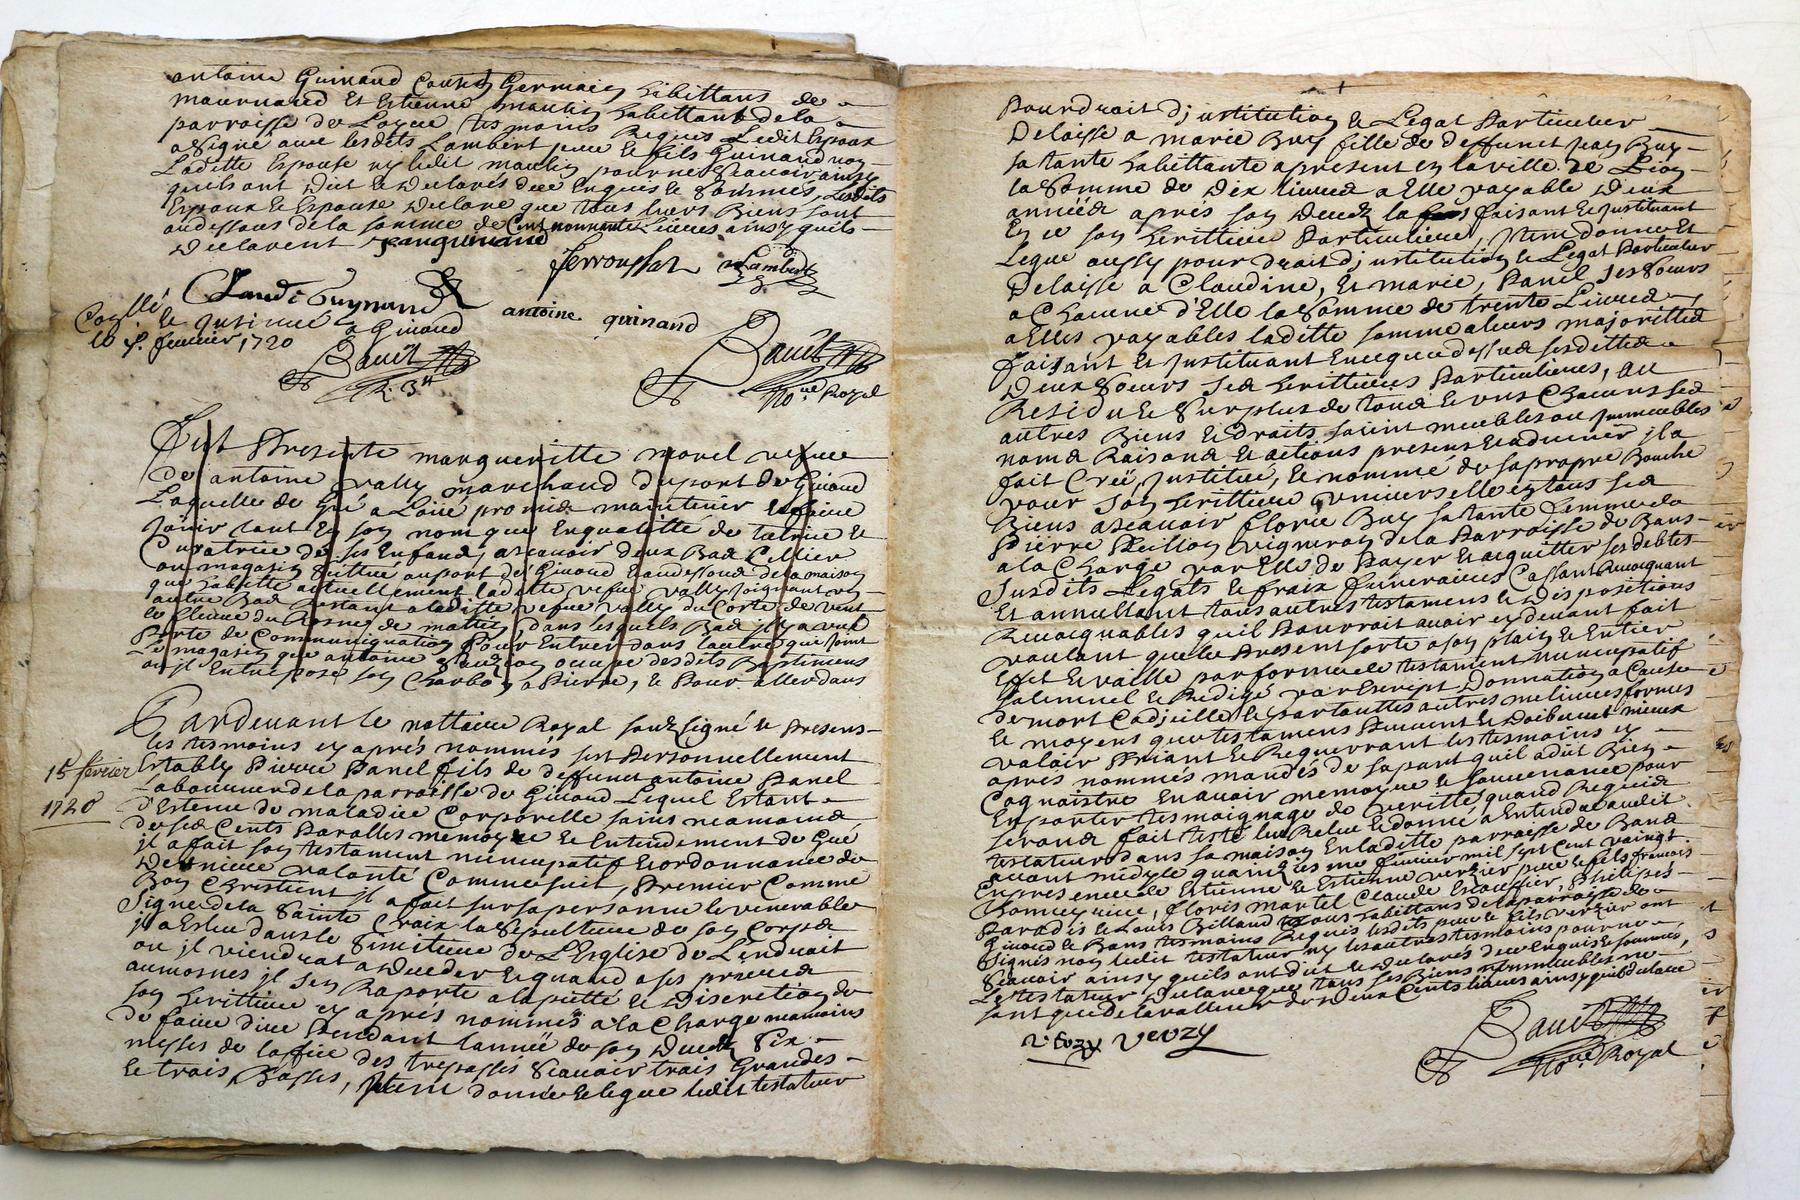 antoine Guinand Germain habittans de
mournand Et Estienne maulin habittant de la
parroisse de tesmoins Requis Ledit Espoux
a signé avec lesdits Lambert pere & fils Guinand non
Laditte Espouse ny ledit maulin pour ne scavoir ainsy
quils ont dict & declarés de ce Enquis & sommés, Lesdits
Espoux & Espouse declare que tous leurs Biens sont
au dessous de la somme de Cent nonnante livres ainsy quils
declarent Jean guinand
ferroussat Lambert
Claude Guynand
antoine guinand
Coллé
a Givord
le fevrier 1720
Bauit Bauit
R. 3 no.re Royal
fut Presente margueritte morel vefue
de antoine vally marchand du port de Givord
Laquelle de Gré a Loüé promis maintenir & faire
Jouir tant En son nom que En qualitté de tutrice &
Curatrice de ses Enfands, ascavoir deux Bas Cellier
ou magasin scittué au port de Givord & au dessous de la maison
que habitte actuellement laditte vefue vally joignant un
autre Bas restant a laditte vefue vally du Costé de vent
le fleuve du Rosne de mattin, dans lesquels Bas jl y a une
Porte de Communiquation Pour Entrer dans lautre que joint
Le magasin que antoine occupe desdits Bastimens
ou jl Entrepose son Charbon a Pierre, & Pour aller dans
Pardevant le nottaire Royal soubsigné & presens
les tesmoins cy aprés nommés fut Personnellement
15 fevrier
Estably Pierre Panel fils de deffunct antoine Panel
Laboureur de la parroisse de Givord Lequel Estant
1720
d'Estenu de maladie Corporelle sains neamoins
de ses Cents Parolles memoyre & Entendement de Gré
jl a fait son testament nuncupatif & ordonnance de
derniere volonté Comme suit, Premier Comme
Bon Chrestient jl a fait sur sa personne le venerable
Signe de la Sainte Croix la sepulture de son Corps
jl a Esleu dans le Simitiere de L'Eglise de Lendroit
ou jl viendrat a deceder & quand a ses prieres
aumosnes jl sen Raporte a la piette & discretion de
son herittiere cy aprés nommés a la Charge neamoins
de faire dire Pendant l'année de son decedz Six
messes de loffice des trepassés Scavoir trois Grandes
& trois Basses, jtem donne & legue ledit testateur
Pour droit dj nstitution & Legat Particulier
Delaisse a marie Buy fille de deffunct jean Buy
sa tante habittante a present en la ville de Lion
la Somme de dix livres a Elle payable deux
années aprés son decedz la faisant & Justituant
En ce son herittiere Particuliere, jtem donne Et
Legue aussy pour droit dj nstitution & Legat Particulier
Delaisse a Claudine, & marie, Panel ses soeurs
a Chacune d'Elle la Somme de trente Livres
a Elles payables laditte somme a leurs majorittés
faisant Et Justituant En ce que dessus sesdittes
deux soeurs ses herittieres Particulieres, au
Residu & Surplus de tous & uns Chacuns ses
autres Biens & droits soient meubles ou Jmmeubles
noms Raisons Et actions presens & advenir jl a
fait Creé, Justitué, & nommé de sa propre Bouche
pour son herittiere vniverselle en tous ses
Biens ascavoir florie Buy sa tante femme de
Pierre Peillon vigneron de la Parroisse de Bans
a la Charge par Elle de Payer & acquitter ses debtes
Susdits Legats & fraix funeraires Cassant Revocquant
Et annullant tous autres testamens & dispositions
Revocquables quil Pourroit avoir cy devant fait
voulant que le Present sorte a son plain & Entier
Effet & vaille par forme de testament nuncupatif
solemnel & Redigé par Escript donnation a Cause
de mort Codjcille & par touttes autres meilleures formes
& moyens que testamens Peuvent & doibvent mieux
valoir Priant & Requerrant les tesmoins cy
aprés nommés mandés de sa part quil a dict Bien
Cognoistre En avoir memoyre & souvenance pour
En porter tesmoignage de veritté quand Requis
serond fait testé leu Releu & donné a Entendre audit
testateur dans sa maison En laditte parroisse de Bans
avant midy le quinziesme fevrier mil sept Cent vaingt
En presence de Estienne & Estienne verzier pere & fils francois
floris martel Claude philipes
Paradis & Louis Billand tous habittans de la parroisse de
Givord & Bans tesmoins Requis lesdits pere & fils verzier ont
signés non ledit testateur ny les autres tesmoins pour ne
scavoir ainsy quils ont dict & declarés de ce Enquis & sommés,
Le testateur declare que tous ses Biens jmmeubles ne
sont que de la valleur de deux Cents livres ainsy quil declare
verzy Bauit
no.re Royal